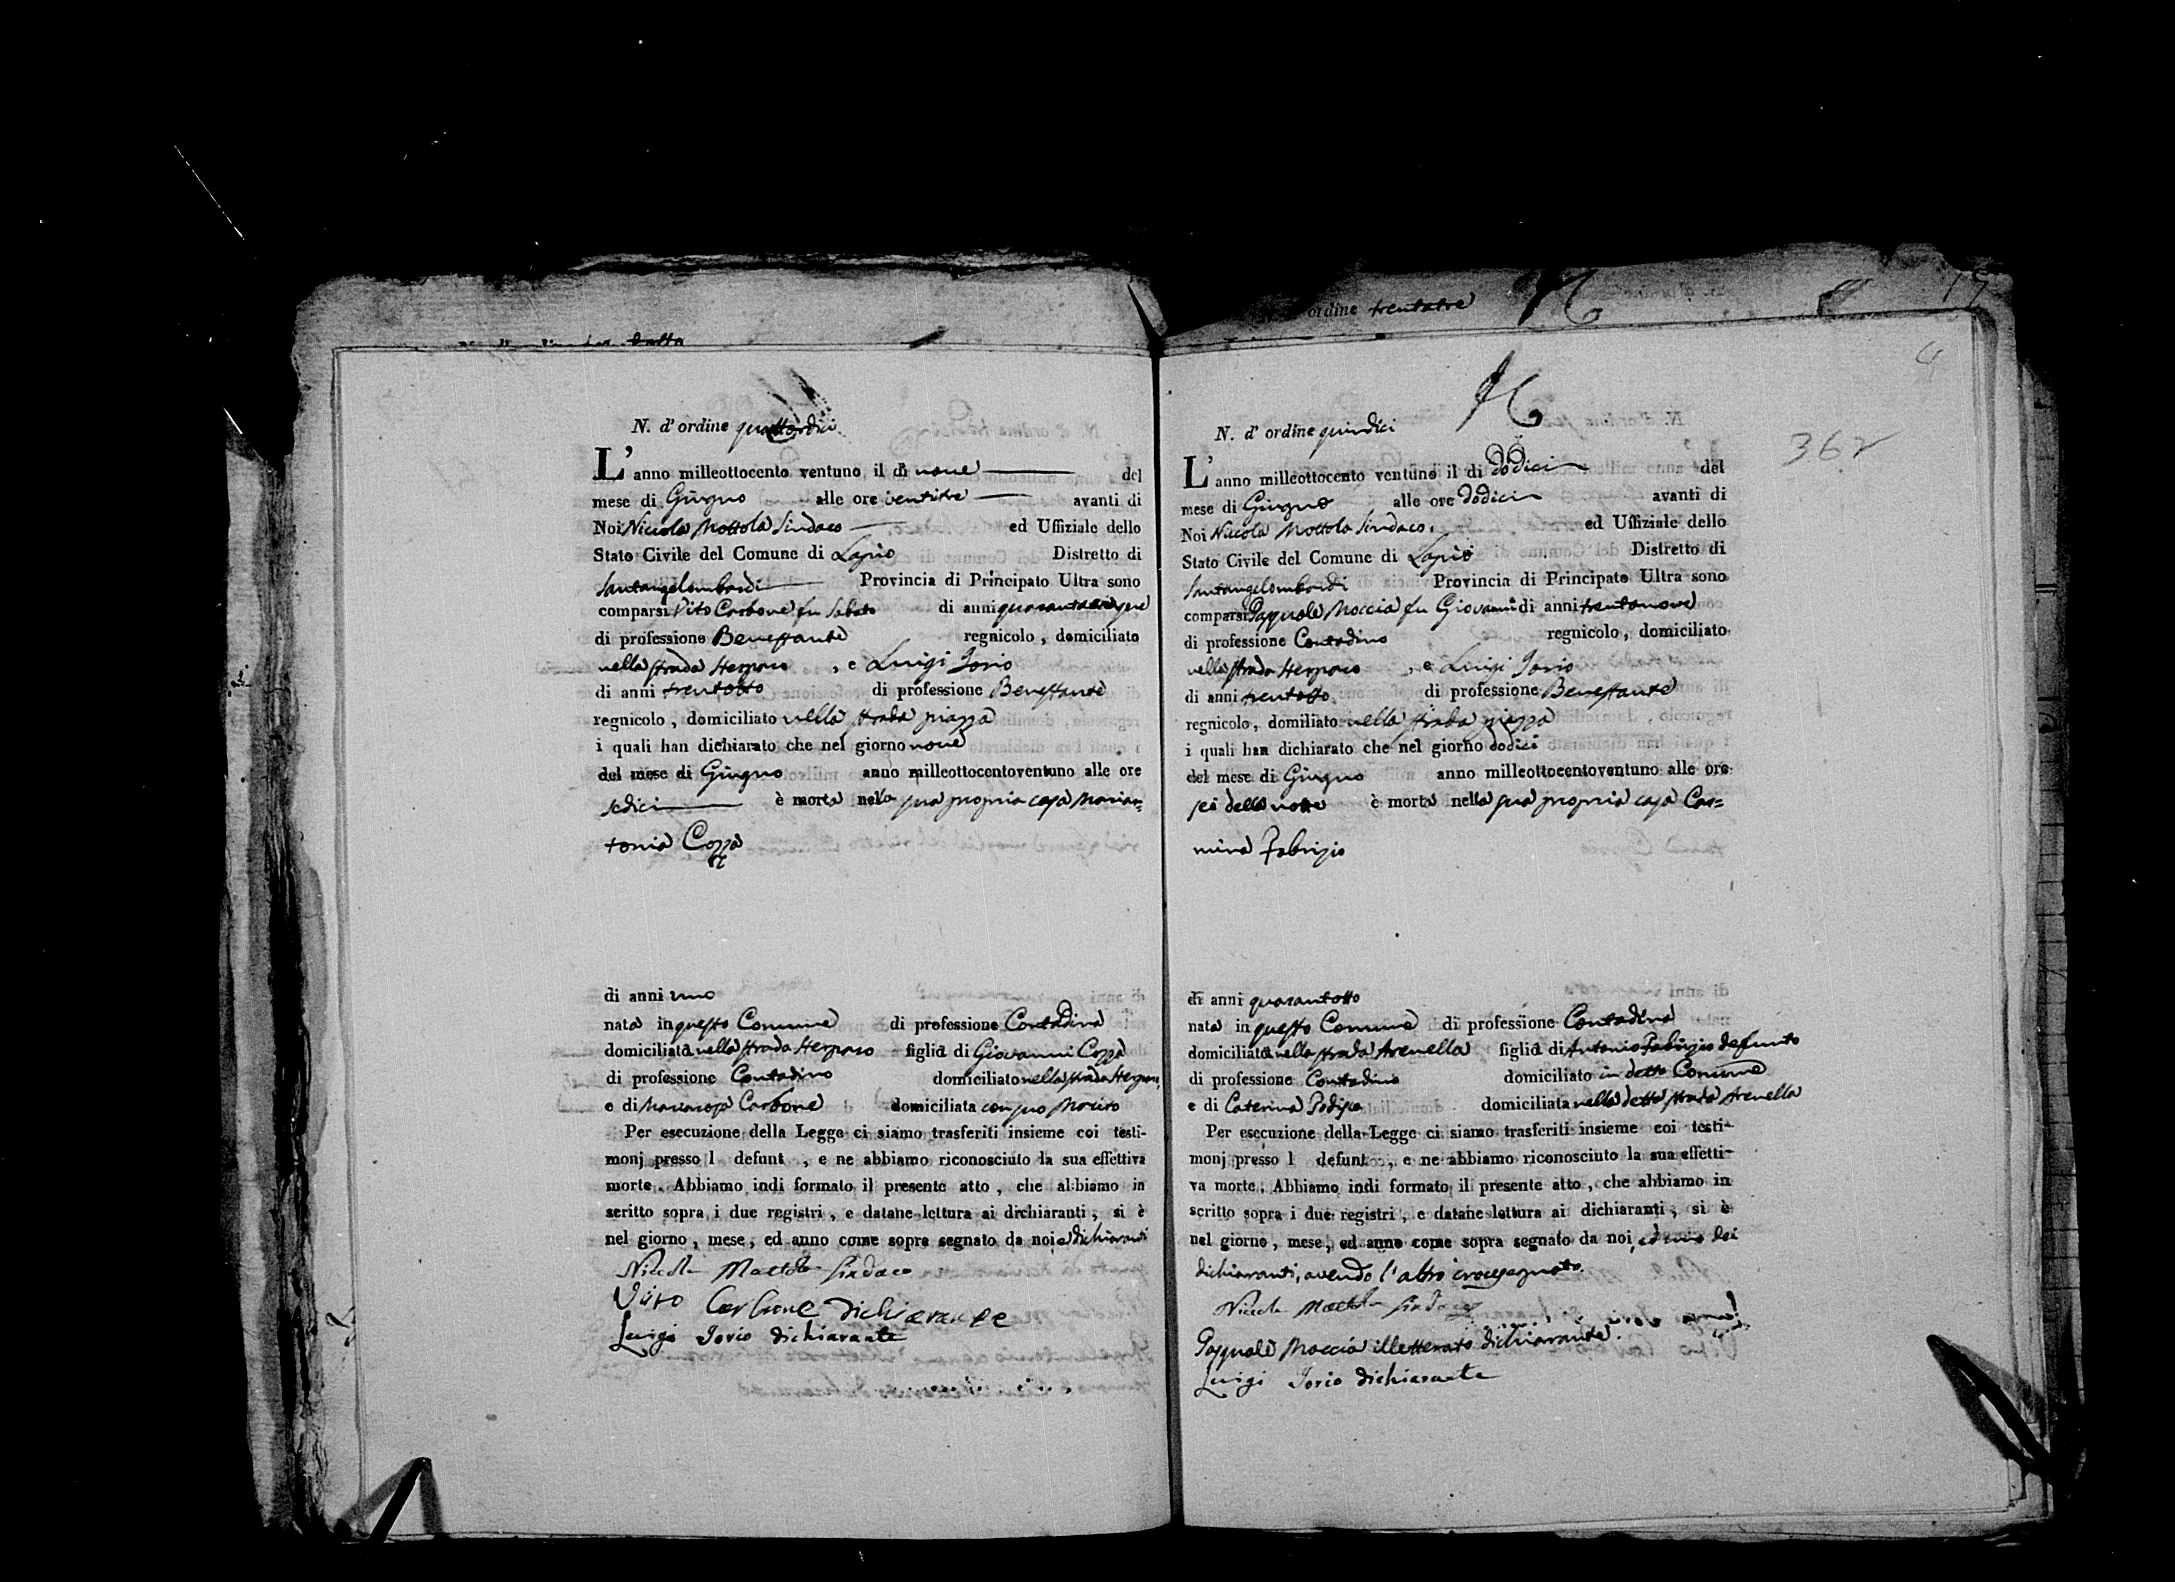 ordine trentatre
17
N. d' ordine quattordici
L' anno milleottocento ventuno il di nove del
mese di Giugno alle ore ventitre avanti di
Noi Niccola Mottola Sindaco ed Uffiziale dello
Stato Civile del Comune di Lapio Distretto di
Santangelombardi Provincia di Principato Ultra sono
comparsi Vito Carbone fu Sabato di anni quarantacinque
di professione Benestante regnicolo, domiciliato
nella strada , e Luigi Iorio
di anni trentotto di professione Benestante
regnicolo, domiciliato nella strada piazza
i quali han dichiarato che nel giorno nove
del mese di Giugno anno milleottocentoventuno alle ore
sedici è morta nella sua propria casa Marian=
tonia Cozza
di anni uno
nata in questo Comune di professione Contadina
domiciliata nella strada figlia di Giovanni Cozza
di professione Contadino domiciliato nella strada
e di Mariarosa Carbone domiciliata con suo Marito
Per esecuzione della Legge ci siamo trasferiti insieme coi testi-
monj presso l defunt , e ne abbiamo riconosciuto la sua effettiva
morte. Abbiamo indi formato il presente atto, che abbiamo in
scritto sopra i due registri, e datane lettura ai dichiaranti, si è
nel giorno, mese, ed anno come sopra segnato da noi e dichiaranti
Niccola Mottola Sindaco
Vito Carbone dichiarante
Luigi Iorio dichiarante
362
N. d' ordine quindici
L' anno milleottocento ventuno il di dodici del
mese di Giugno alle ore dodici avanti di
Noi Niccola Mottola Sindaco. ed Uffiziale dello
Stato Civile del Comune di Lapio Distretto di
Santangelombardi Provincia di Principato Ultra sono
comparsi Pasquale Moccia fu Giovanni di anni trentanove
di professione Contadino regnicolo, domiciliato
nella strada , e Luigi Iorio
di anni trentotto di professione Benestante
regnicolo, domiliato nella strada piazza
i quali han dichiarato che nel giorno dodici
del mese di Giugno anno milleottocentoventuno alle ore
sei della notte è morta nella sua propria casa Car=
mina Fabrizio
di anni quarantotto
nata in questo Comune di professione Contadina
domiciliata nella strada Arenella figlia di Antonio Fabrizio defunto
di professione Contadino domiciliato in detto Comune
e di Caterina domiciliata nella detta strada Arenella
Per esecuzione della Legge ci siamo trasferiti insieme coi testi-
monj presso l defunt , e ne abbiamo riconosciuto la sua effetti-
va morte. Abbiamo indi formato il presente atto, che abbiamo in
scritto sopra i due registri, e datane lettura ai dichiaranti, si è
nel giorno, mese, ed anno come sopra segnato da noi, ed uno dei
dichiaranti, avendo l'altro crocesegnato.
Niccola Mottola Sindaco
Pasquale Moccia illetterato dichiarante.
Luigi Iorio dichiarante